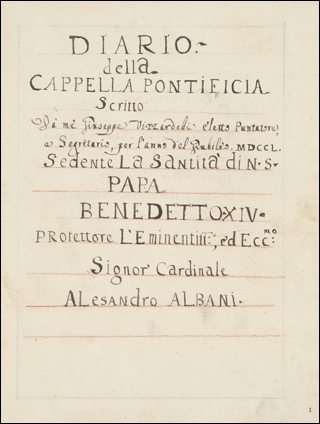 DIARIO.-
della
CAPPELLA PONTIFICIA
Scritto
Da me Giuseppe Vizzardeli eletto Puntatore,
e Segretario, per l'anno del Giubileo. MDCCL.
Sedente La Santità di N·S·
PAPA
BENEDETTO·XIV·
Protettore L'Eminentiss:, ed Ecc:mo
Signor Cardinale
ALesandro ALBANI·
1